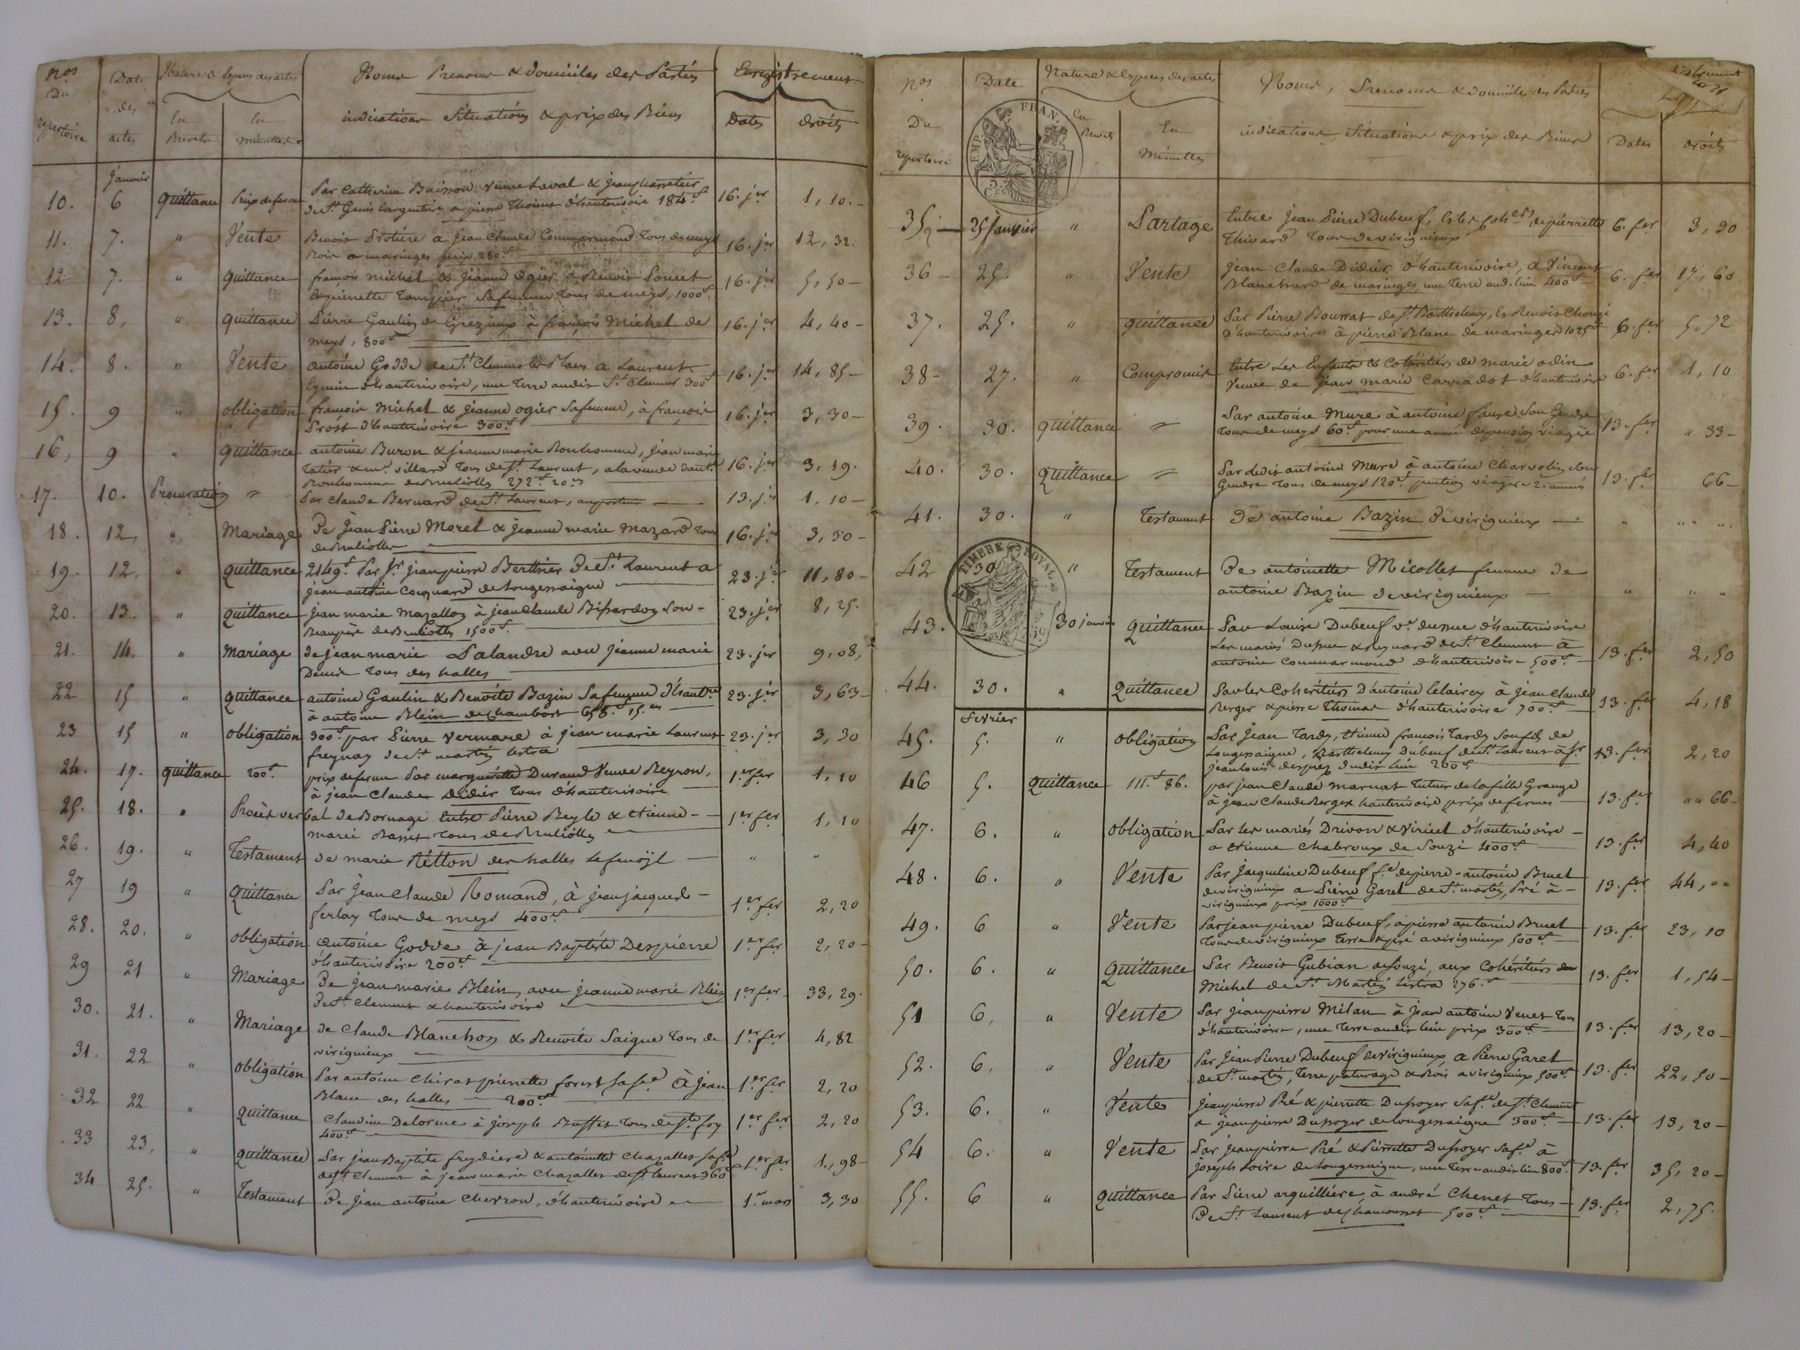 Nos Date Nature & Espèces des actes Noms Prenoms & domiciles des Parties Enregistrement
Du des En En indications Situations & prix des Biens Dates droits
repertoire actes Brevets minuttes
Janvier
10. 6 Quittance Par Catherine Buisson veuve Laval & jean 16. jer 1, 10.-
de St. Genis l'argentiere a pierre Thoinet d'hauterivoire 184f
11. 7. " Vente Benoit Protiere a Jean Claude Commarmond Tous de meys 16. jer 12, 32.
12 7. " quittance francois michel & jeanne ogier a Benoit Poncet 16. jer 5, 50-
sa femme Tous de meys, 1000f.
13. 8, " quittance Pierre Gaulin de Grezieux à françois Michel de 16. jer 4, 40-
meys, 800f
14. 8. " Vente antoine Godde de St. Clement les Places a Laurent 16. jer 14, 85-
d'hauterivoire, une Terre audit St. Clement 300f
15. 9 " obligation françois Michel & jeanne ogier Safemme, à françois 16. jer 3, 30-
Prost d'hauterivoire 300f
16, 9 " quittance antoine Buron & jeanne marie Bonhomme, jean marie 16. jer 3, 19.
villard Tous de St. Laurent, a la veuve
Bonhomme de Brullioles 272f 20c
17. 10. Procuration " Par Claude Bernard de St. Laurent, 13. jer 1, 10-
18. 12, " Mariage De Jean Pierre Morel & jeanne marie Mazard Tous 16. jer 3, 30-
de Brulioles
19 12, " quittance 2149f Par Sr. jean pierre Berthier De St. Laurent a 23. jer 11, 80-
jean antoine Coquard de Longessaigne
20. 13. " quittance jean marie Mazallon à jean Claude Bissardon son 23. jer 8, 25.
Beaupère de Brulioles 1500f
21. 14. " Mariage de jean marie Lalandre avec jeanne marie 23. jer 9, 08,
Tous des halles
22 15 " quittance antoine Gaulin & Benoite Bazin Safemme d'haut.re 23. jer 3, 63-
à antoine Blein de Chambost 658f 15c
23 15 " obligation 300f par Pierre Vermare à jean marie Laurent 23. jer 3, 30
freynay de St. martin lestra
24. 17. quittance 200f prix de ferme Par margueritte Durand Veuve Reyron, 1er fer 1, 10
à jean Claude Didier Tous d'hauterivoire
25. 18. " Procès verbal de Bornage Entre Pierre Reyle & etienne 1er fer 1, 10
marie Tous de Brulioles
26. 19. " Testament de marie Ritton des halles le fenoÿl " "
27 19 " Quittance Par jean claude Romand, à jean jacques 1er fer 2, 20
ferlay Tous de meys 400f
28. 20. " obligation antoine Godde à jean Baptiste Despierre 1er fer 2, 20-
d'hauterivoire 200f
29 21 " Mariage De jean marie Blein, avec jeanne marie Blein 1er fer 33, 29.
De St. Clement & hauterivoire
30. 21. " Mariage de Claude Blanchon & Benoite Saigne Tous de 1er fer 4, 82
virigneux
31. 22 " obligation Par antoine Chirat pierrette forest safe à Jean 1er fer 2, 20
Blanc des halles 200f
32 22 " quittance Claudine Delorme à Joseph Buffet Tous de Ste foy 1er fer 2, 20
400f
33 23, " quittance Par jean Baptiste freydiere & antoinette Chazalles safe 1er fer 1, 98-
de St. Clement à jean marie Chazalles de St. laurent 360f
34 25. " Testament De jean antoine Chevron, d'hauterivoire 1er mars 3, 30
Nos Date Nature & Especes des actes Noms, Prenoms & domicile des Parties
Du En Brevets En indications Situations & prix des Biens Dates droits
repertoire Minuttes
FRAN.
35 25 janvier " Partage Entre jean Pierre Dubeuf, de pierrette 6. fer 3, 30
Thivard Tous de virigneux
36 25. " Vente Jean Claude Didier d'hauterivoire, a Vincent 6. fer 17, 60
Blanchard de maringes, une Terre aud. lieu 400f
37. 25. " quittance Par Pierre Bourrat de St. Barthelemy, & Benoit
d'hauterivoire à pierre Blanc de maringes 1025f 6. fer 5, 72
38 27. " Compromis Entre Les Enfants & Cohéritiers de marie odin 6. fer 1, 10
Veuve de jean marie Carradot d'hauterivoire
39. 30. quittance " Par antoine Mure à antoine faure Son Gendre 13. fer " 33-
Tous de meys 60f pour une année de pension viagère
40. 30. Quittance " Par dedit antoine Mure à antoine Charvolin son 13. fer 66-
Gendre Tous de meys 120f pention viagère 2 années
41. 30. " Testament De antoine Bazin De virigneux " " "
TIMBRE ROYAL
42 30 " Testament De antoinette Micollet femme de
antoine Bazin de virigneux " " "
43. 30 janvier Quittance Par Louise Dubeuf ve. d'hauterivoire
Les mariés & Reynard de St. Clement à 13. fer 2, 50
antoine Commarmond d'hauterivoire 500f
44. 30. " Quittance Par les Cohéritiers d'antoine à jean Claude
Berger & pierre Thomas d'hauterivoire 700f 13. fer 4, 18
fevrier
45. 5. " obligation Par Jean Tardy, etienne françois Tardy de
Longessaigne, Barthelemy Dubeuf de St. Laurent à Sr. 13. fer 2, 20
jean louis despres dudit lieu 200f
46 5. Quittance 111f 86. par jean Claude marnat Tuteur de la fille Grange
à jean Claude Berger hauterivoire prix de fermes 13. fer " " 66-
47. 6. " obligation Par les mariés Drivon & Viricel d'hauterivoire
a etienne Chabroux de Souzi 400f 13. fer 4, 40
48. 6. " Vente Par Jacqueline Dubeuf fe. de pierre-antoine Bruel
de virigneux a Pierre Garel de St. martin, Pré à 13. fer 44, " "
virigneux prix 1000f
49. 6 " Vente Par jean pierre Dubeuf, à pierre antoine Bruel 13. fer 23, 10
Tous de virigneux Terre & pré a virigneux 500f
50. 6. " Quittance Par Benoit Gubian de Souzi, aux Cohéritiers de 13. fer 1, 54-
Michel de St. Martin lestra 276f
51 6, " Vente Par jean pierre Milan à jean antoine Venet Tous
d'hauterivoire, une Terre audit lieu prix 300f 13. fer 13, 20-
52. 6, " Vente Par Jean Pierre Dubeuf de virigneux, a Pierre Garel
de St. martin, Terre paturage & Bois a virigneux 500f 13. fer 22, 50-
53. 6. " Vente jean pierre Pré & pierrette Dupoyer Safe. de St. Clement
a jean pierre Dupoyer de longessaigne 300f 13. fer 13, 20-
54 6. " Vente Par jean pierre Pré & Pierrette Dupoyer Safe. à
Joseph Loire de Longessaigne, une Terre audit lieu 800f 13. fer 35, 20-
55. 6 " quittance Par Pierre arquilliere à andré Chenet Tous 13. fer 2, 75.
De St. Laurent de Chamousset 500f